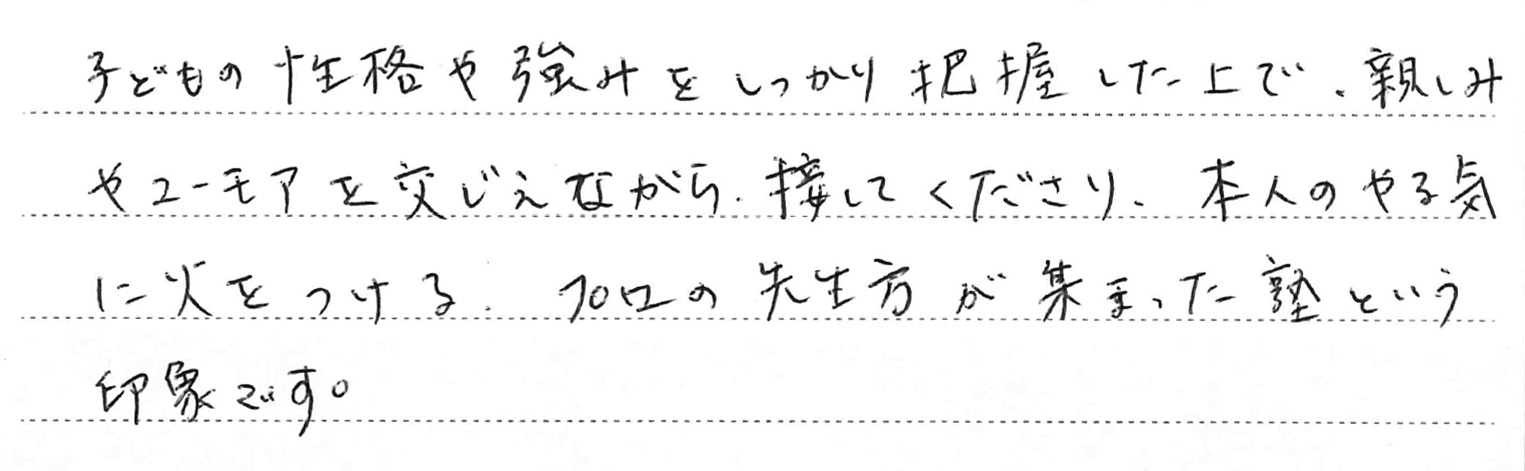 子どもの性格や強みをしっかり把握した上で、親しみ
やユーモアを交じえながら、接してくださり、本人のやる気
に火をつける、プロの先生方が集まった塾という
印象です。